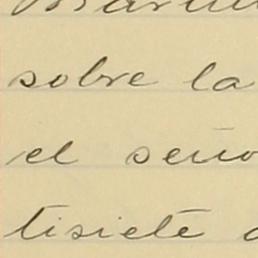 sobre la
el seño
tisiete